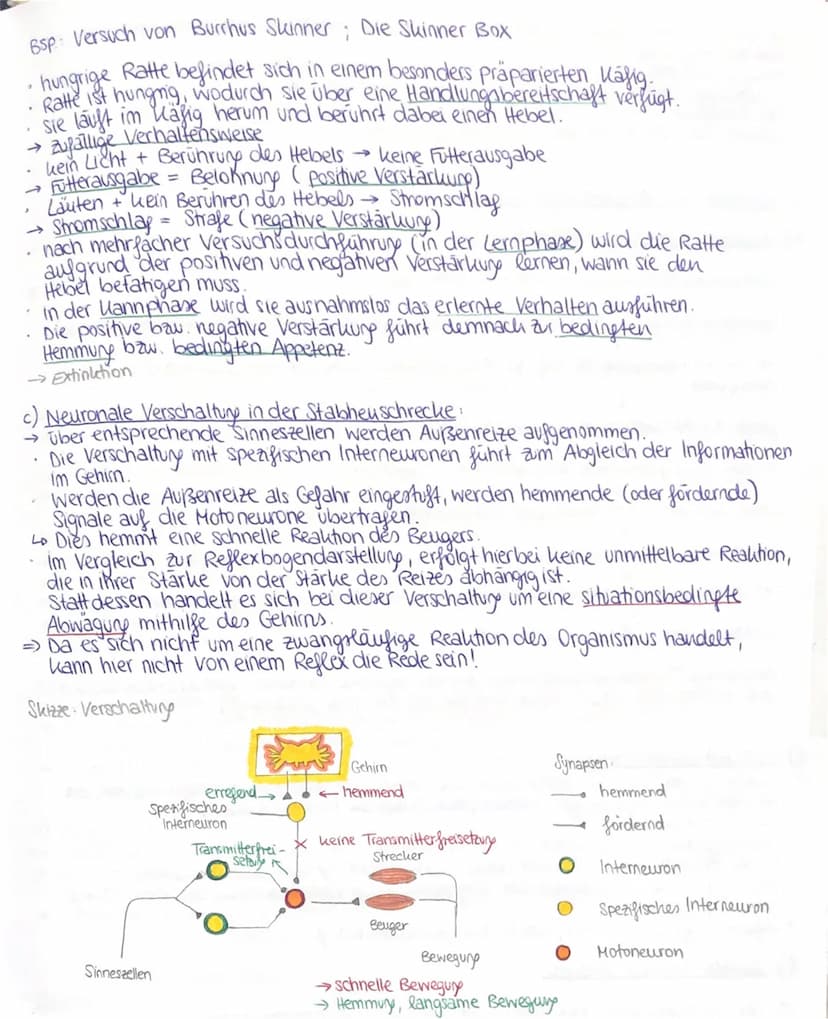 Bsp: Versuch von Burrhus Skinner ; Die Skinner Box
· hungrige Ratte befindet sich in einem besonders präparierten Käfig.
· Ratte ist hungrig, wodurch sie über eine Handlungsbereitschaft verfügt.
· sie läuft im Käfig herum und berührt dabei einen Hebel.
→ zufällige Verhaltensweise
· kein Licht + Berührung des Hebels → keine Futterausgabe
→ Futterausgabe = Belohnung (positive Verstärkung)
· Läuten + kein Berühren des Hebels → Stromschlag
→ Stromschlag = Strafe (negative Verstärkung)
· nach mehrfacher Versuchsdurchführung (in der Lernphase) wird die Ratte
aufgrund der positiven und negativen Verstärkung lernen, wann sie den
Hebel betätigen muss.
· in der Kannphase wird sie ausnahmslos das erlernte Verhalten ausführen.
· Die positive bzw. negative Verstärkung führt demnach zu bedingten
Hemmung bzw. bedingten Appetenz.
→ Extinktion
c) Neuronale Verschaltung in der Stabheuschrecke:
→ über entsprechende Sinneszellen werden Außenreize aufgenommen.
· Die Verschaltung mit spezifischen Interneuronen führt zum Abgleich der Informationen
im Gehirn.
· Werden die Außenreize als Gefahr eingestuft, werden hemmende (oder fördernde)
Signale auf die Motoneurone übertragen.
↳ Dies hemmt eine schnelle Reaktion des Beugers.
· Im Vergleich zur Reflexbogendarstellung, erfolgt hierbei keine unmittelbare Reaktion,
die in ihrer Stärke von der Stärke des Reizes abhängig ist.
Stattdessen handelt es sich bei dieser Verschaltung um eine situationsbedingte
Abwägung mithilfe des Gehirns.
⇒ Da es sich nicht um eine zwangsläufige Reaktion des Organismus handelt,
kann hier nicht von einem Reflex die Rede sein!
Skizze: Verschaltung
Gehirn
erregend →
← hemmend
spezifisches
Interneuron
Transmitterfrei-
setzung
× keine Transmitterfreisetzung
Strecker
Beuger
Bewegung
Sinneszellen
→ schnelle Bewegung
→ Hemmung, langsame Bewegung
Synapsen:
hemmend
fördernd
Interneuron
Spezifisches Interneuron
Motoneuron